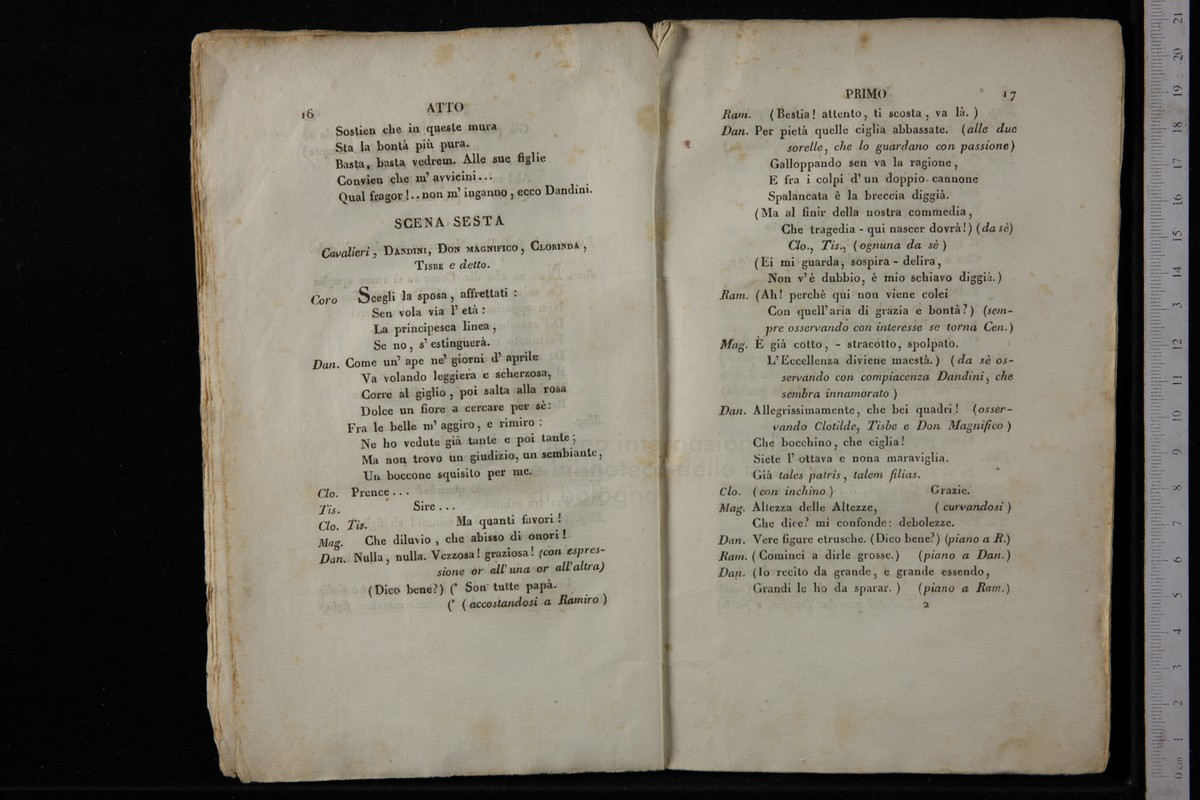 16
ATTO
Sostien che in queste mura
Sta la bontà più pura.
Basta, basta vedrem. Alle sue figlie
Convien che m' avvicini...
Qual fragor!..non m' inganno, ecco Dandini.
SCENA SESTA
Cavalieri, DANDINI, DON MAGNIFICO, CLORINDA,
TISBE e detto.
Coro Scegli la sposa, affrettati:
Sen vola via l' età:
La principesca linea,
Se no, s' estinguerà.
Dan. Come un' ape ne' giorni d' aprile
Va volando leggiera e scherzosa,
Corre al giglio, poi salta alla rosa
Dolce un fiore a cercare per sè:
Fra le belle m' aggiro, e rimiro:
Ne ho vedute già tante e poi tante;
Ma non trovo un giudizio, un sembiante,
Un boccone squisito per me.
Clo. Prence...
Tis. Sire...
Clo. Tis. Ma quanti favori!
Mag. Che diluvio, che abisso di onori!
Dan. Nulla, nulla. Vezzosa! graziosa! (con espres-
sione or all' una or all' altra)
(Dico bene?) (* Son tutte papà.
(* (accostandosi a Ramiro)
PRIMO
17
Ram. (Bestia! attento, ti scosta, va là.)
Dan. Per pietà quelle ciglia abbassate. (alle due
sorelle, che lo guardano con passione)
Galloppando sen va la ragione,
E fra i colpi d' un doppio cannone
Spalancata è la breccia diggià.
(Ma al finir della nostra commedia,
Che tragedia - qui nascer dovrà!) (da sè)
Clo., Tis., (ognuna da sè)
(Ei mi guarda, sospira - delira,
Non v' è dubbio, è mio schiavo diggià.)
Ram. (Ah! perchè qui non viene colei
Con quell' aria di grazia e bontà?) (sem-
pre osservando con interesse se torna Cen.)
Mag. È già cotto, - stracotto, spolpato.
L' Eccellenza diviene maestà.) (da sè os-
servando con compiacenza Dandini, che
sembra innamorato)
Dan. Allegrissimamente, che bei quadri! (osser-
vando Clotilde, Tisbe e Don Magnifico)
Che bocchino, che ciglia!
Siete l' ottava e nona maraviglia.
Già tales patris, talem filias.
Clo. (con inchino) Grazie.
Mag. Altezza delle Altezze, (curvandosi)
Che dice? mi confonde: debolezze.
Dan. Vere figure etrusche. (Dico bene?) (piano a R.)
Ram. (Cominci a dirle grosse.) (piano a Dan.)
Dan. (Io recito da grande, e grande essendo,
Grandi le ho da sparar.) (piano a Ram.)
2